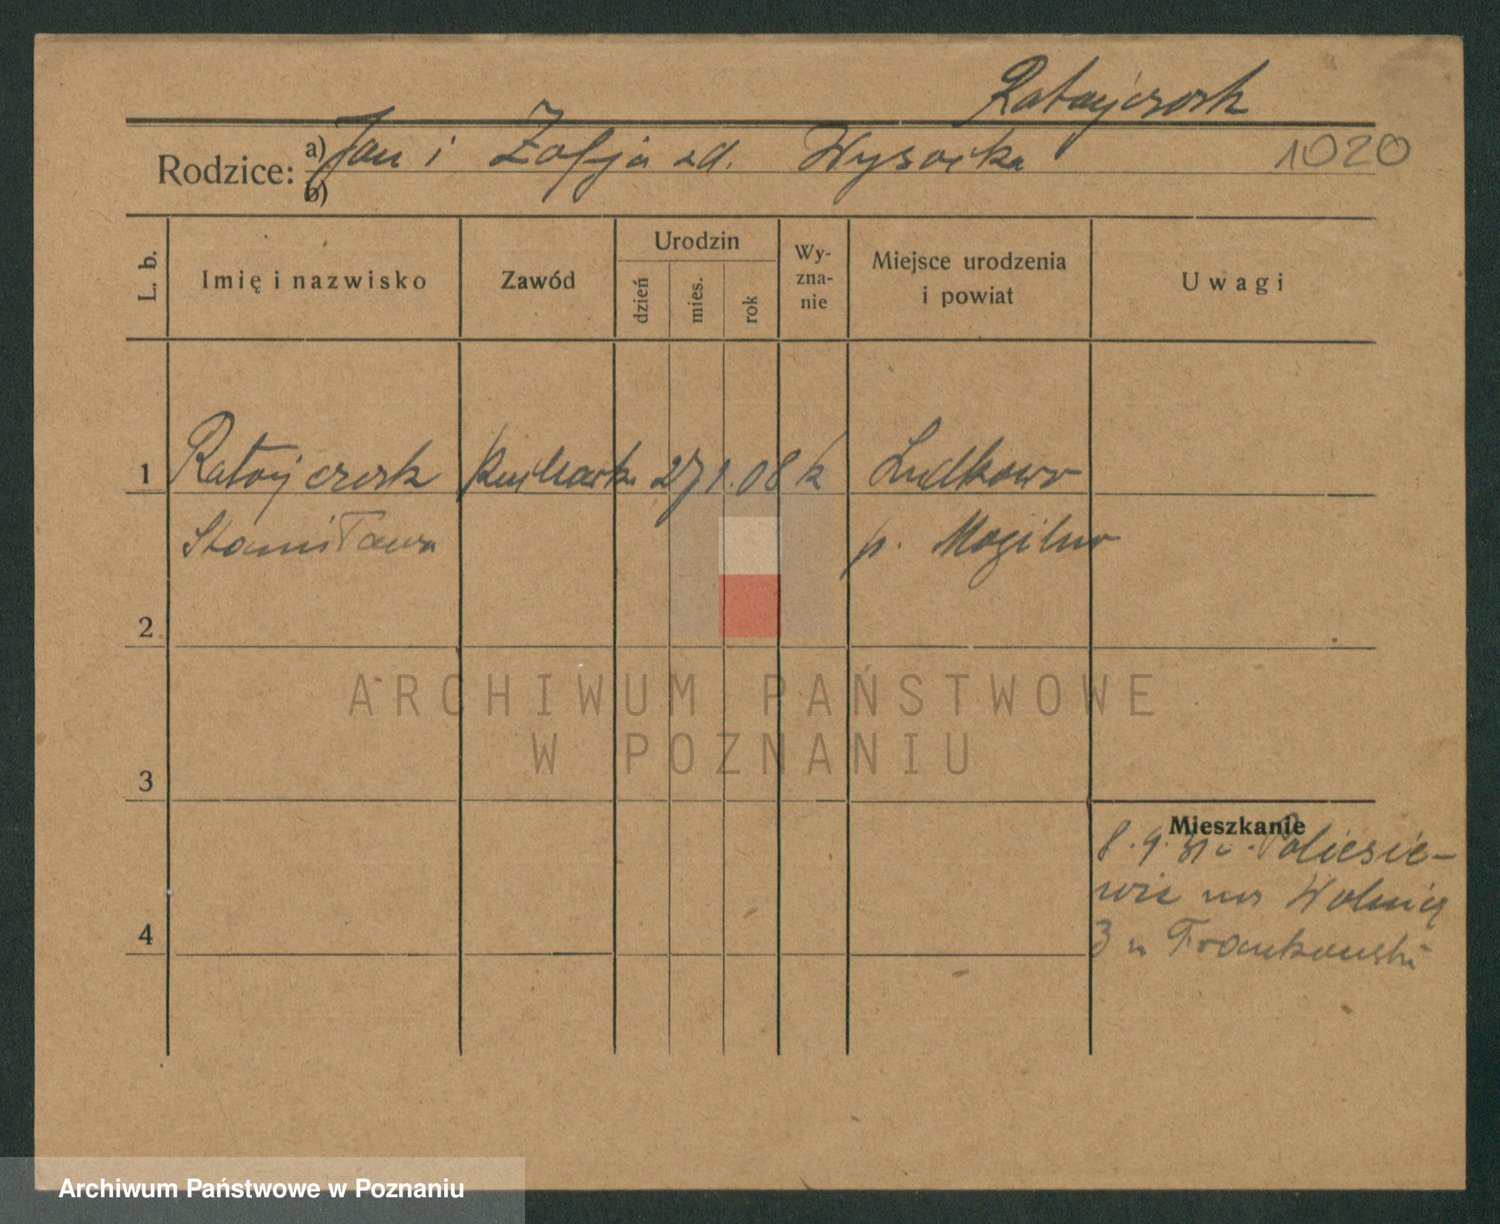 Ratajczak
Rodzice: a) Jan i Zofja zd. Wysocka
b)
1020
L. b.
Imię i nazwisko
Zawód
Urodzin
dzień
mies.
rok
Wy-
zna-
nie
Miejsce urodzenia
i powiat
Uwagi
1 Ratajczak 27 1. 08 k Ludkowo
Stanisława p. Mogilno
2
ARCHIWUM PAŃSTWOWE
W POZNANIU
3
Mieszkanie
8. 9. 31
na Wolnica
3 u Frankowski
4
Archiwum Państwowe w Poznaniu